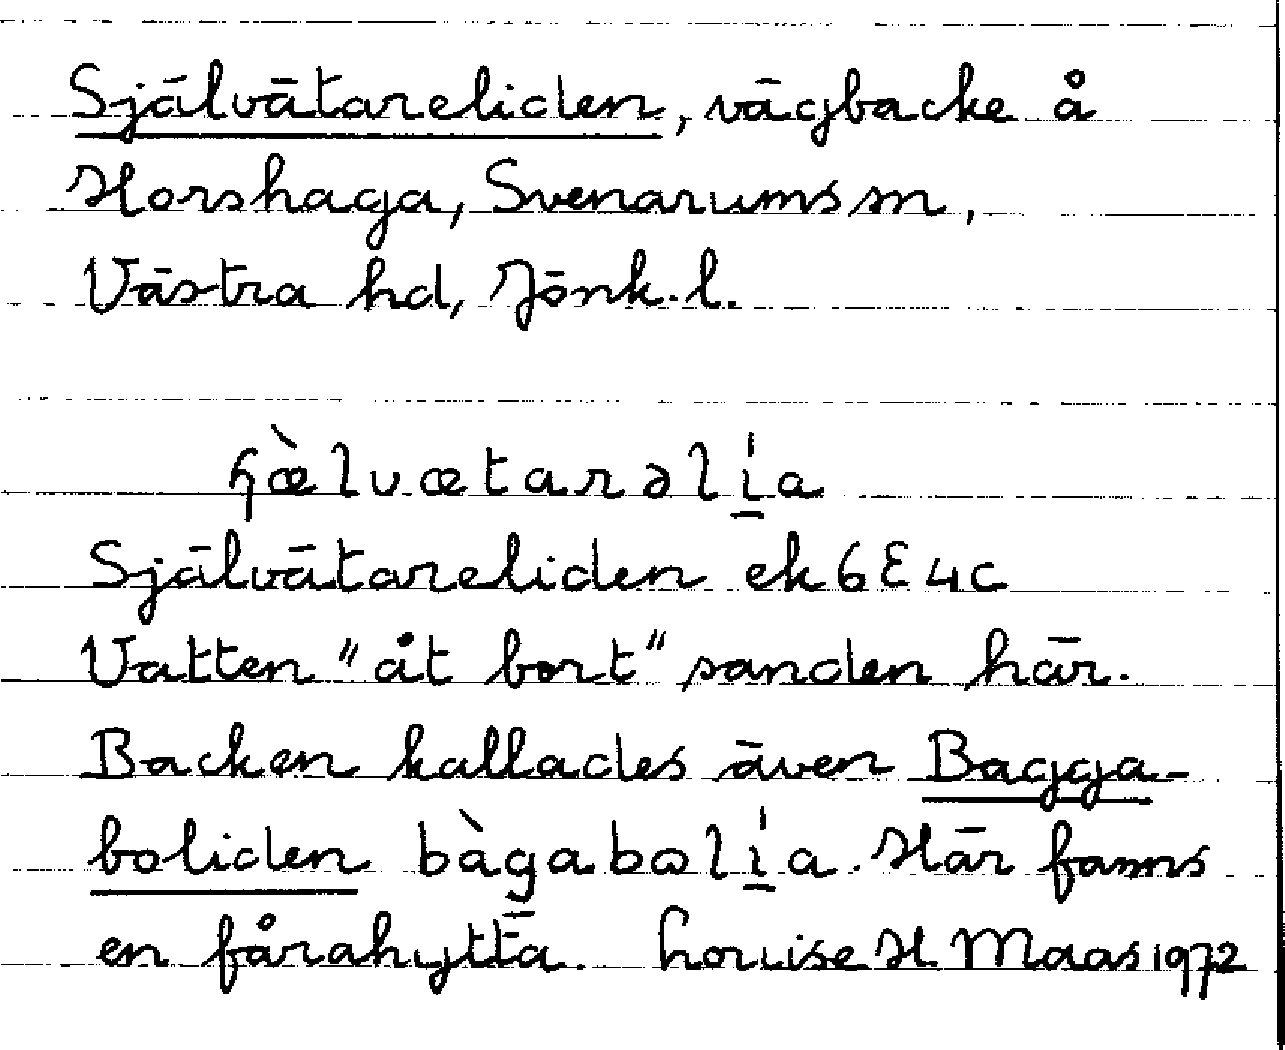 Självätareliden, vägbacke å
Horshaga, Svenarums sn,
Västra hd, Jönk. l.
ɧæ̀lvætarəlı̱́a
Självätareliden ek 6E4c
Vatten "åt bort" sanden här.
Backen kallades även Bagga-
boliden bàgabɷlı̱́a. Här fanns
en fårahytta. Louise H Maas 1972